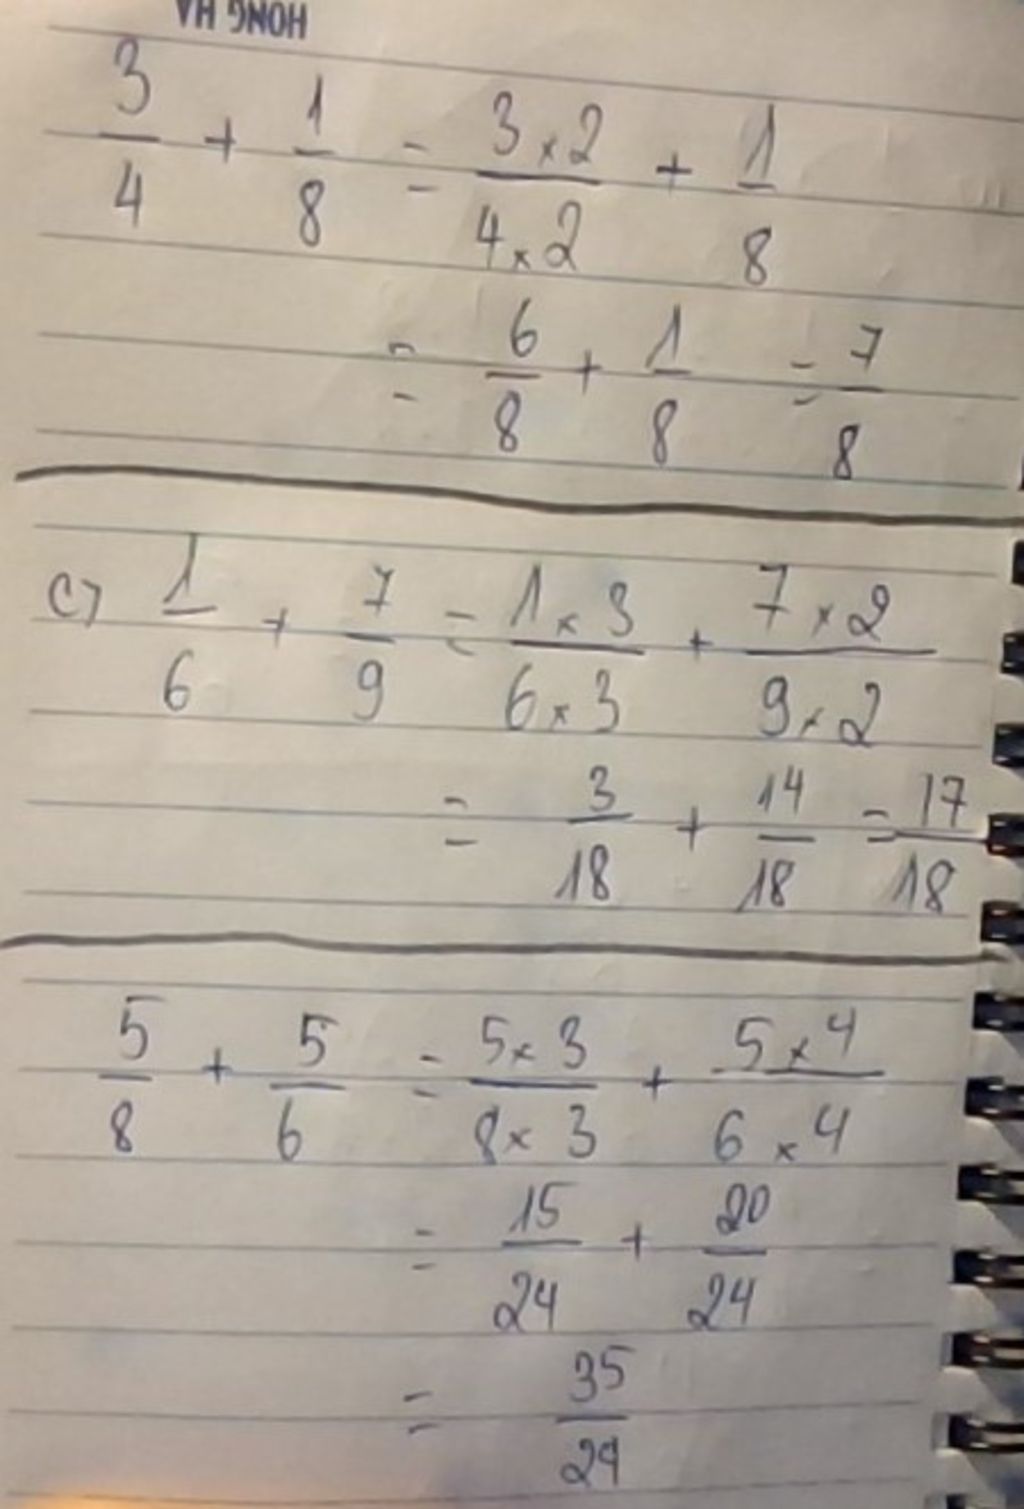 HONG HA
3/4 + 1/8 = 3×2/4×2 + 1/8
= 6/8 + 1/8 = 7/8
c) 1/6 + 7/9 = 1×3/6×3 + 7×2/9×2
= 3/18 + 14/18 = 17/18
5/8 + 5/6 = 5×3/8×3 + 5×4/6×4
= 15/24 + 20/24
= 35/24